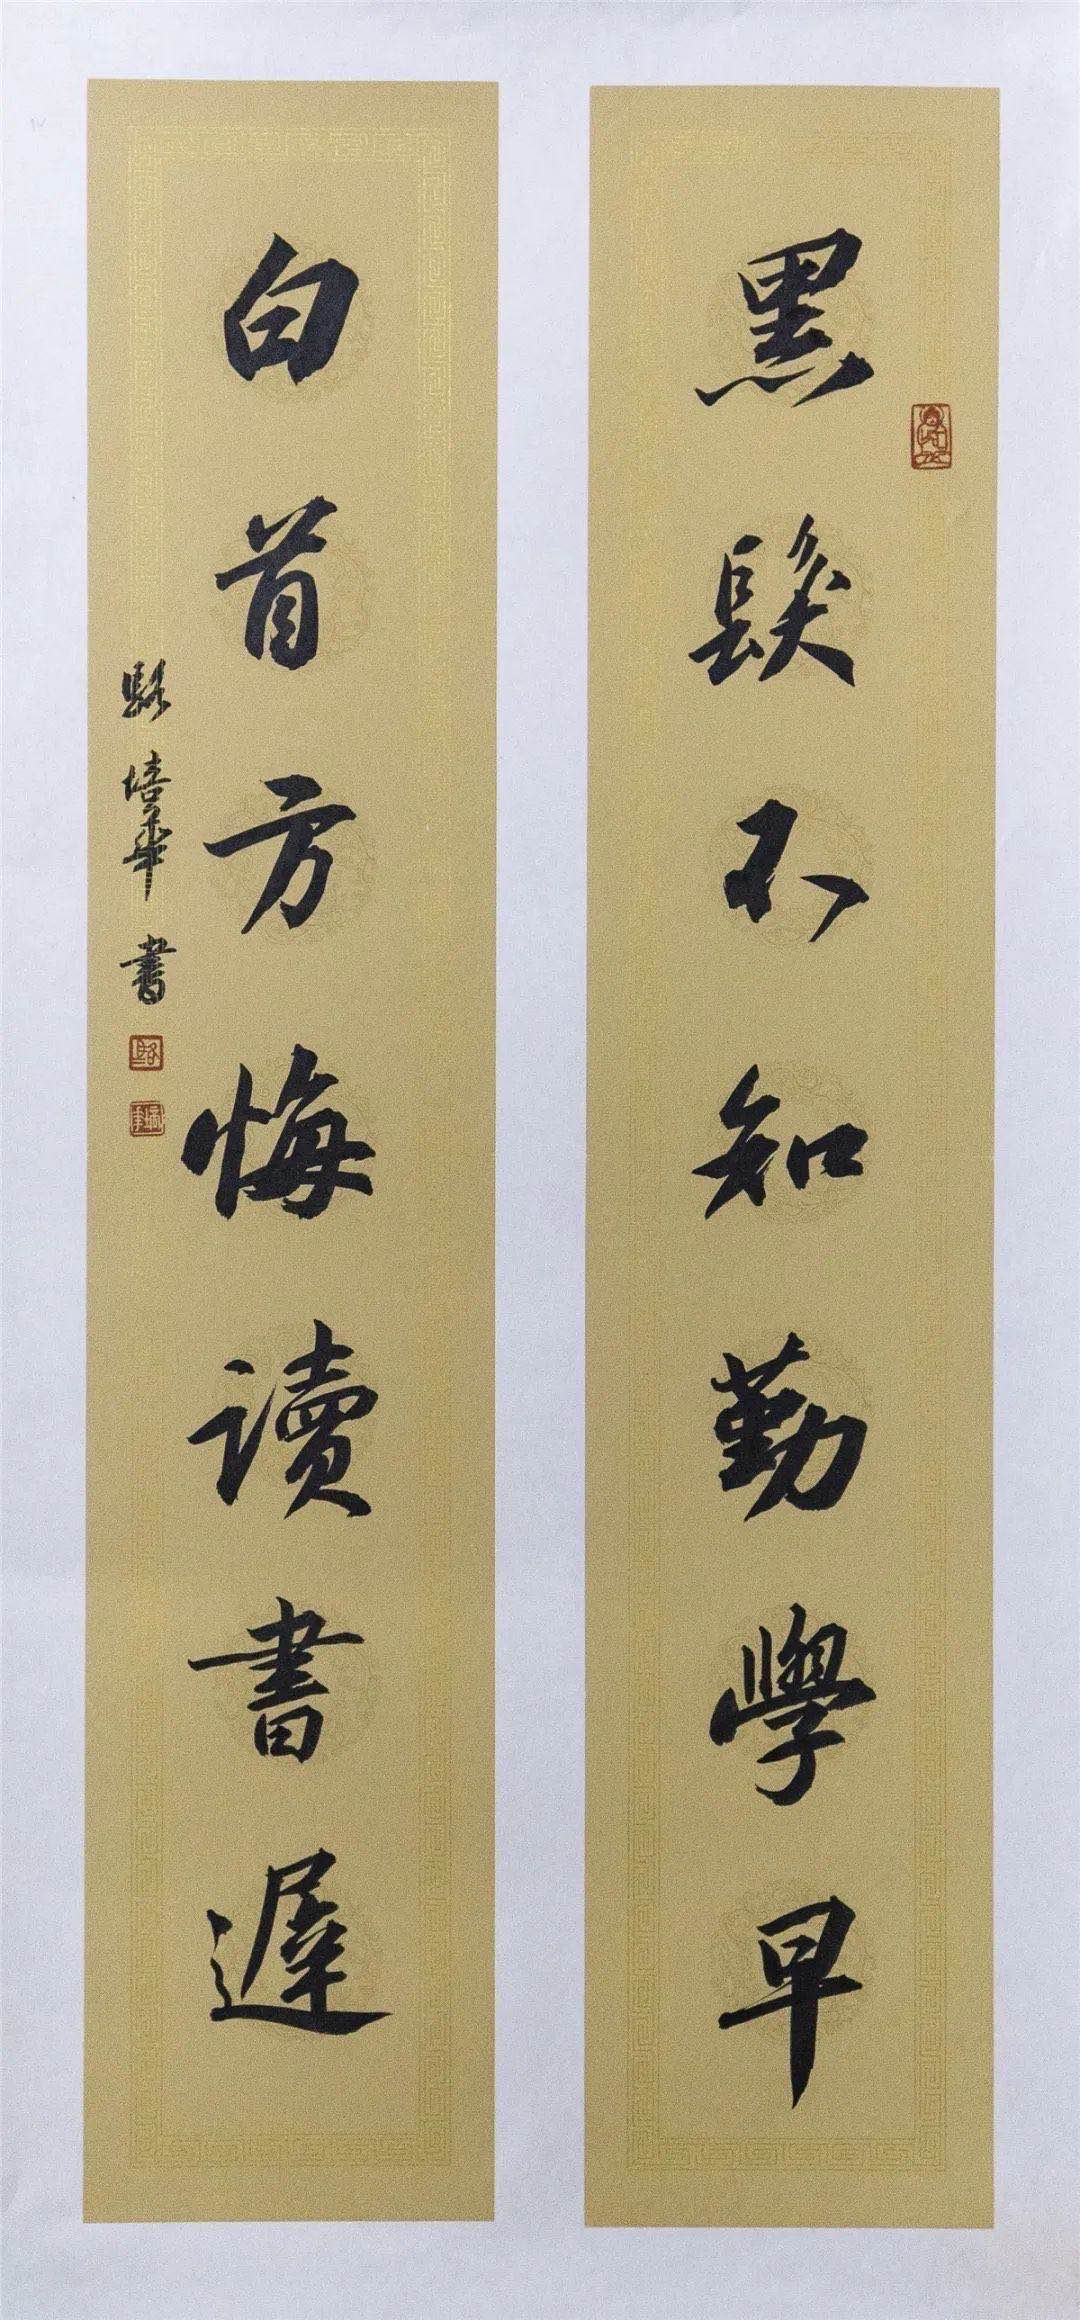 黑髮不知勤學早
白首方悔讀書遲
駱培華書